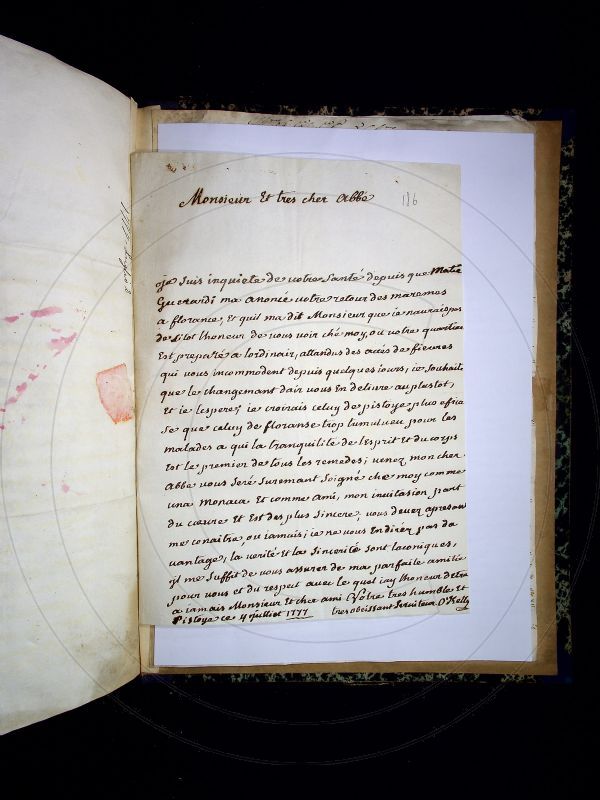 Monsieur Et tres cher Abbé
186
je suis inquiete de votre santé depuis que Matie
Guerardi ma anoncé votre retour des maremes
a floranse, Et quil ma dit Monsieur que je naurai pas
de sitot lhoneur de vous voir ché moy, ou votre quartier
Est preparé a lordinair, attandus des acces de fievres
qui vous incommodent depuis quelques iours, ie souhaite
que le changemant dair vous En delivre au plustot,
Et ie lespere, ie croirais celuy de pistoye plus effica
se que celuy de floranse trop tumulueu pour les
malades a qui la tranquilité de lesprit Et du corps
Est le premier de tous les remedes; venez mon cher
Abbé vous seré suremant soigné che moy comme
una Monaca Et comme ami, mon invitasion part
du cœure Et Est des plus sincere, vous devez apresan
me conaitre, ou iamais; ie ne vous En dirér pas da
vantage, la verité Et la sincerité sont laconiques,
il me suffit de vous assurer de ma parfaite amitie
pour vous et du respect avec le quel iay lhoneur detre
a iamais Monsieur Et cher ami Votre tres humble Et
Pistoye ce 4 juilliet 1777 tres obeissant Serviteur O'Kelly